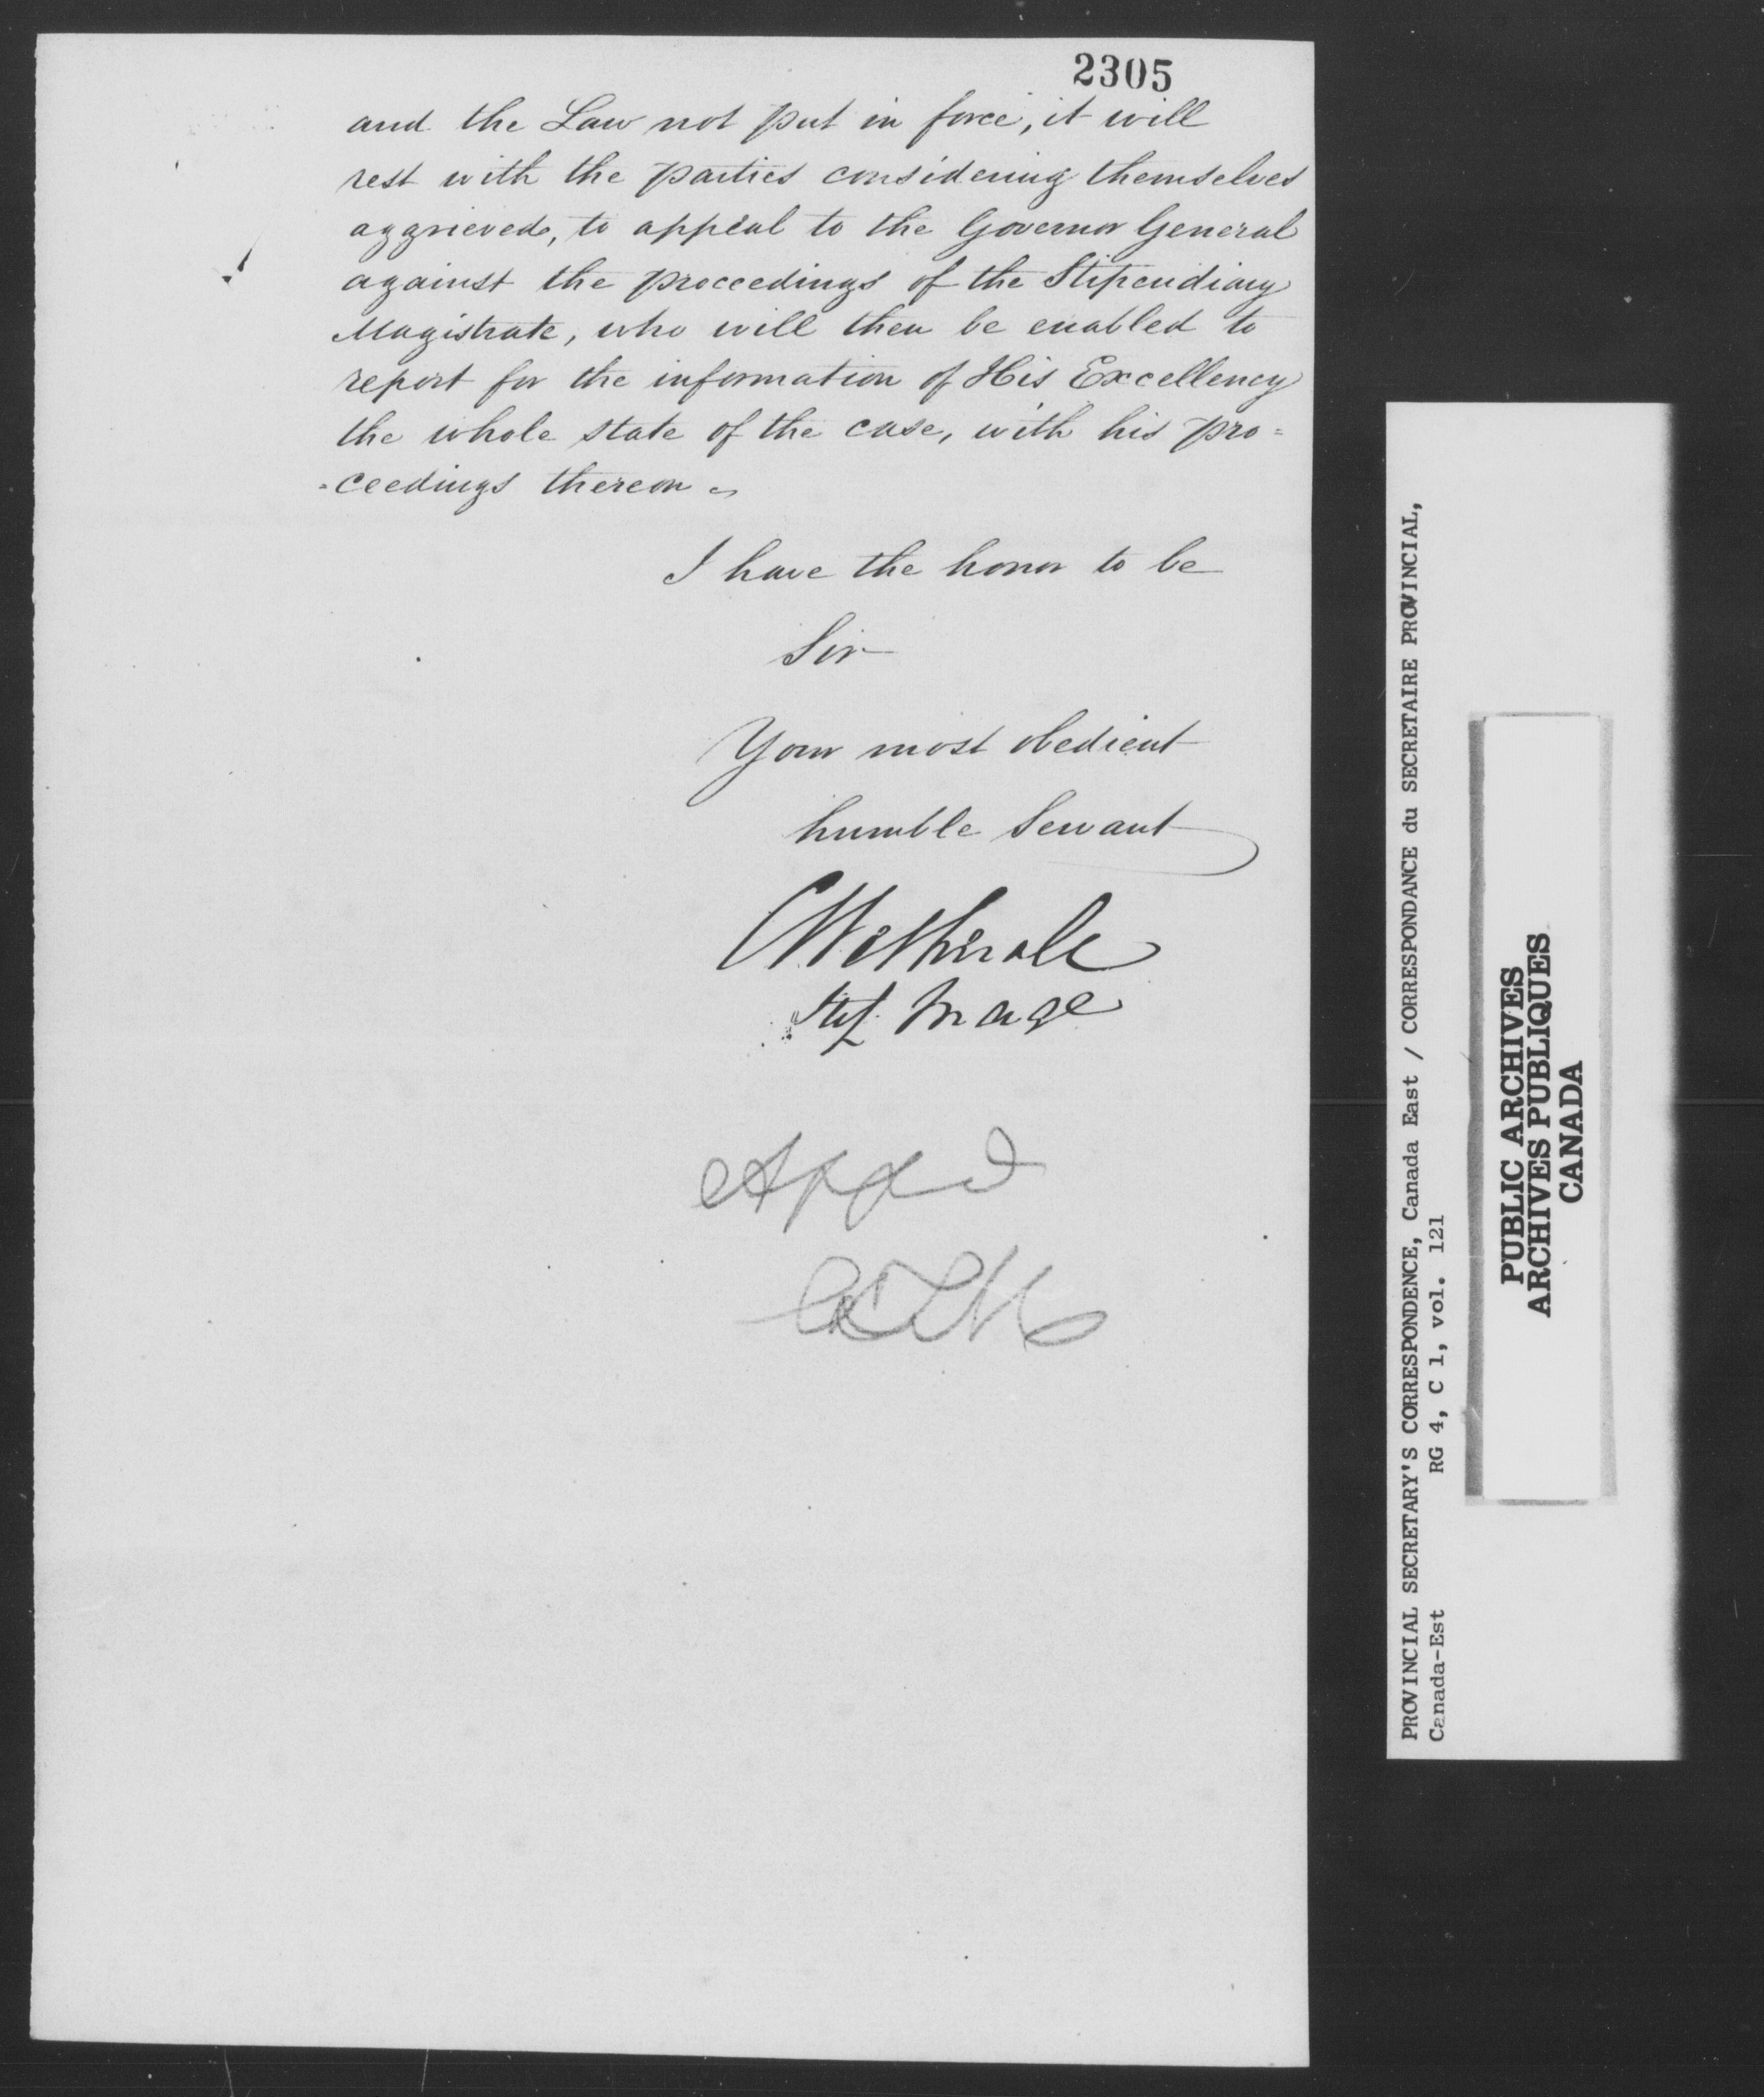 2305
and the Law not put in force, it will
rest with the parties considering themselves
aggrieved, to appeal to the Governor General
against the proceedings of the Stipendiary
Magistrate, who will then be enabled to
report for the information of His Excellency
the whole state of the case, with his pro=
=ceedings thereon
I have the honor to be
Sir
Your most obedient
humble Servant
CWetherall
Stip. Mage
Appd
PROVINCIAL SECRETARY'S CORRESPONDENCE, Canada East / CORRESPONDANCE du SECRETAIRE PROVINCIAL,
Canada-Est RG 4, C 1, vol. 121
PUBLIC ARCHIVES
ARCHIVES PUBLIQUES
CANADA